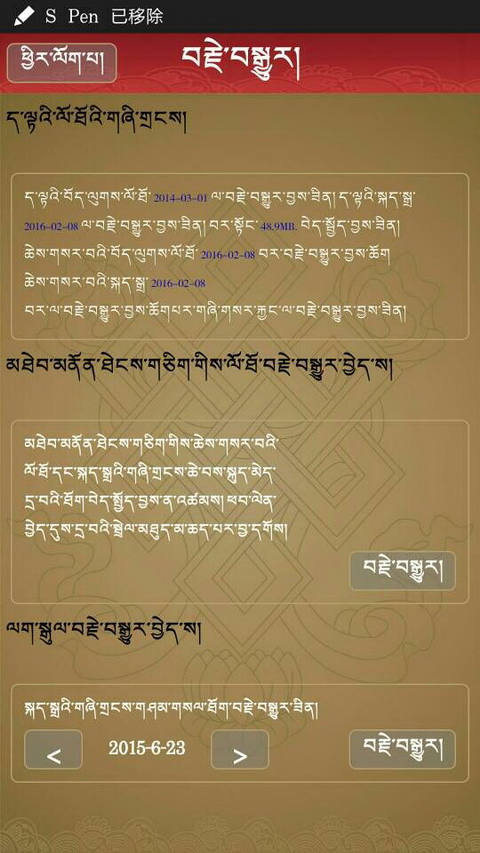 S Pen 已移除
ཕྱིར་ལོག་པ།
བརྗེ་བསྒྱུར།
ད་ལྟའི་ལོ་ཐོའི་གཞི་གྲངས།
ད་ལྟའི་བོད་ལུགས་ལོ་ཐོ་ 2014-03-01 ལ་བརྗེ་བསྒྱུར་བྱས་ཟིན། ད་ལྟའི་སྐད་སྒྲ་
2016-02-08 ལ་བརྗེ་བསྒྱུར་བྱས་ཟིན། བར་སྟོང་ 48.9MB. བེད་སྤྱོད་བྱས་ཟིན།
ཆེས་གསར་བའི་བོད་ལུགས་ལོ་ཐོ་ 2016-02-08 བར་བརྗེ་བསྒྱུར་བྱས་ཆོག
ཆེས་གསར་བའི་སྐད་སྒྲ་ 2016-02-08
བར་ལ་བརྗེ་བསྒྱུར་བྱས་ཆོགཔར་གཞི་གསར་རྐྱང་ལ་བརྗེ་བསྒྱུར་བྱས་ཟིན།
མཐེབ་མནོན་ཐེངས་གཅིག་གིས་ལོ་ཐོ་བརྗེ་བསྒྱུར་བྱེད་ས།
མཐེབ་མནོན་ཐེངས་གཅིག་གིས་ཆེས་གསར་བའི་
ལོ་ཐོ་དང་སྐད་སྒྲའི་གཞི་གྲངས་ཆེ་བས་སྐུད་མེད་
དྲ་བའི་ཐོག་བེད་སྤྱོད་བྱས་ན་འཚམས། ཕབ་ལེན་
བྱེད་དུས་དྲ་བའི་སྦྲེལ་མཐུད་མ་ཆད་པར་བྱ་དགོས།
བརྗེ་བསྒྱུར།
ལག་སྒུལ་བརྗེ་བསྒྱུར་བྱེད་ས།
སྐད་སྒྲའི་གཞི་གྲངས་གཤམ་གསལ་ཐོག་བརྗེ་བསྒྱུར་ཟིན།
< 2015-6-23 > བརྗེ་བསྒྱུར།